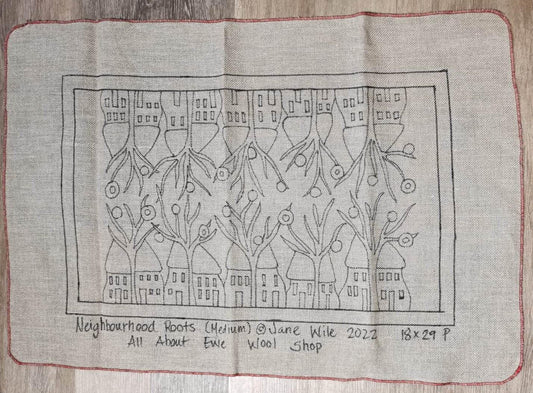 Neighbourhood Roots (Medium) © Jane Wile 2022 18x29 P
All About Ewe Wool Shop